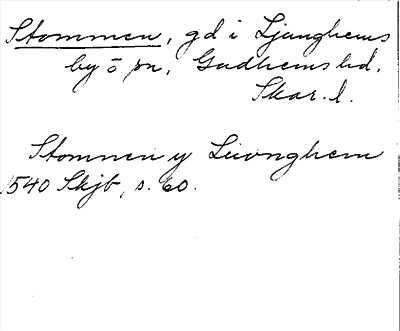 Stommen, gd i Ljunghems
by o sn, Gudhems hd,
Skar. l.
Stommen y Liwnghem
1540 Skjb, s. 60.